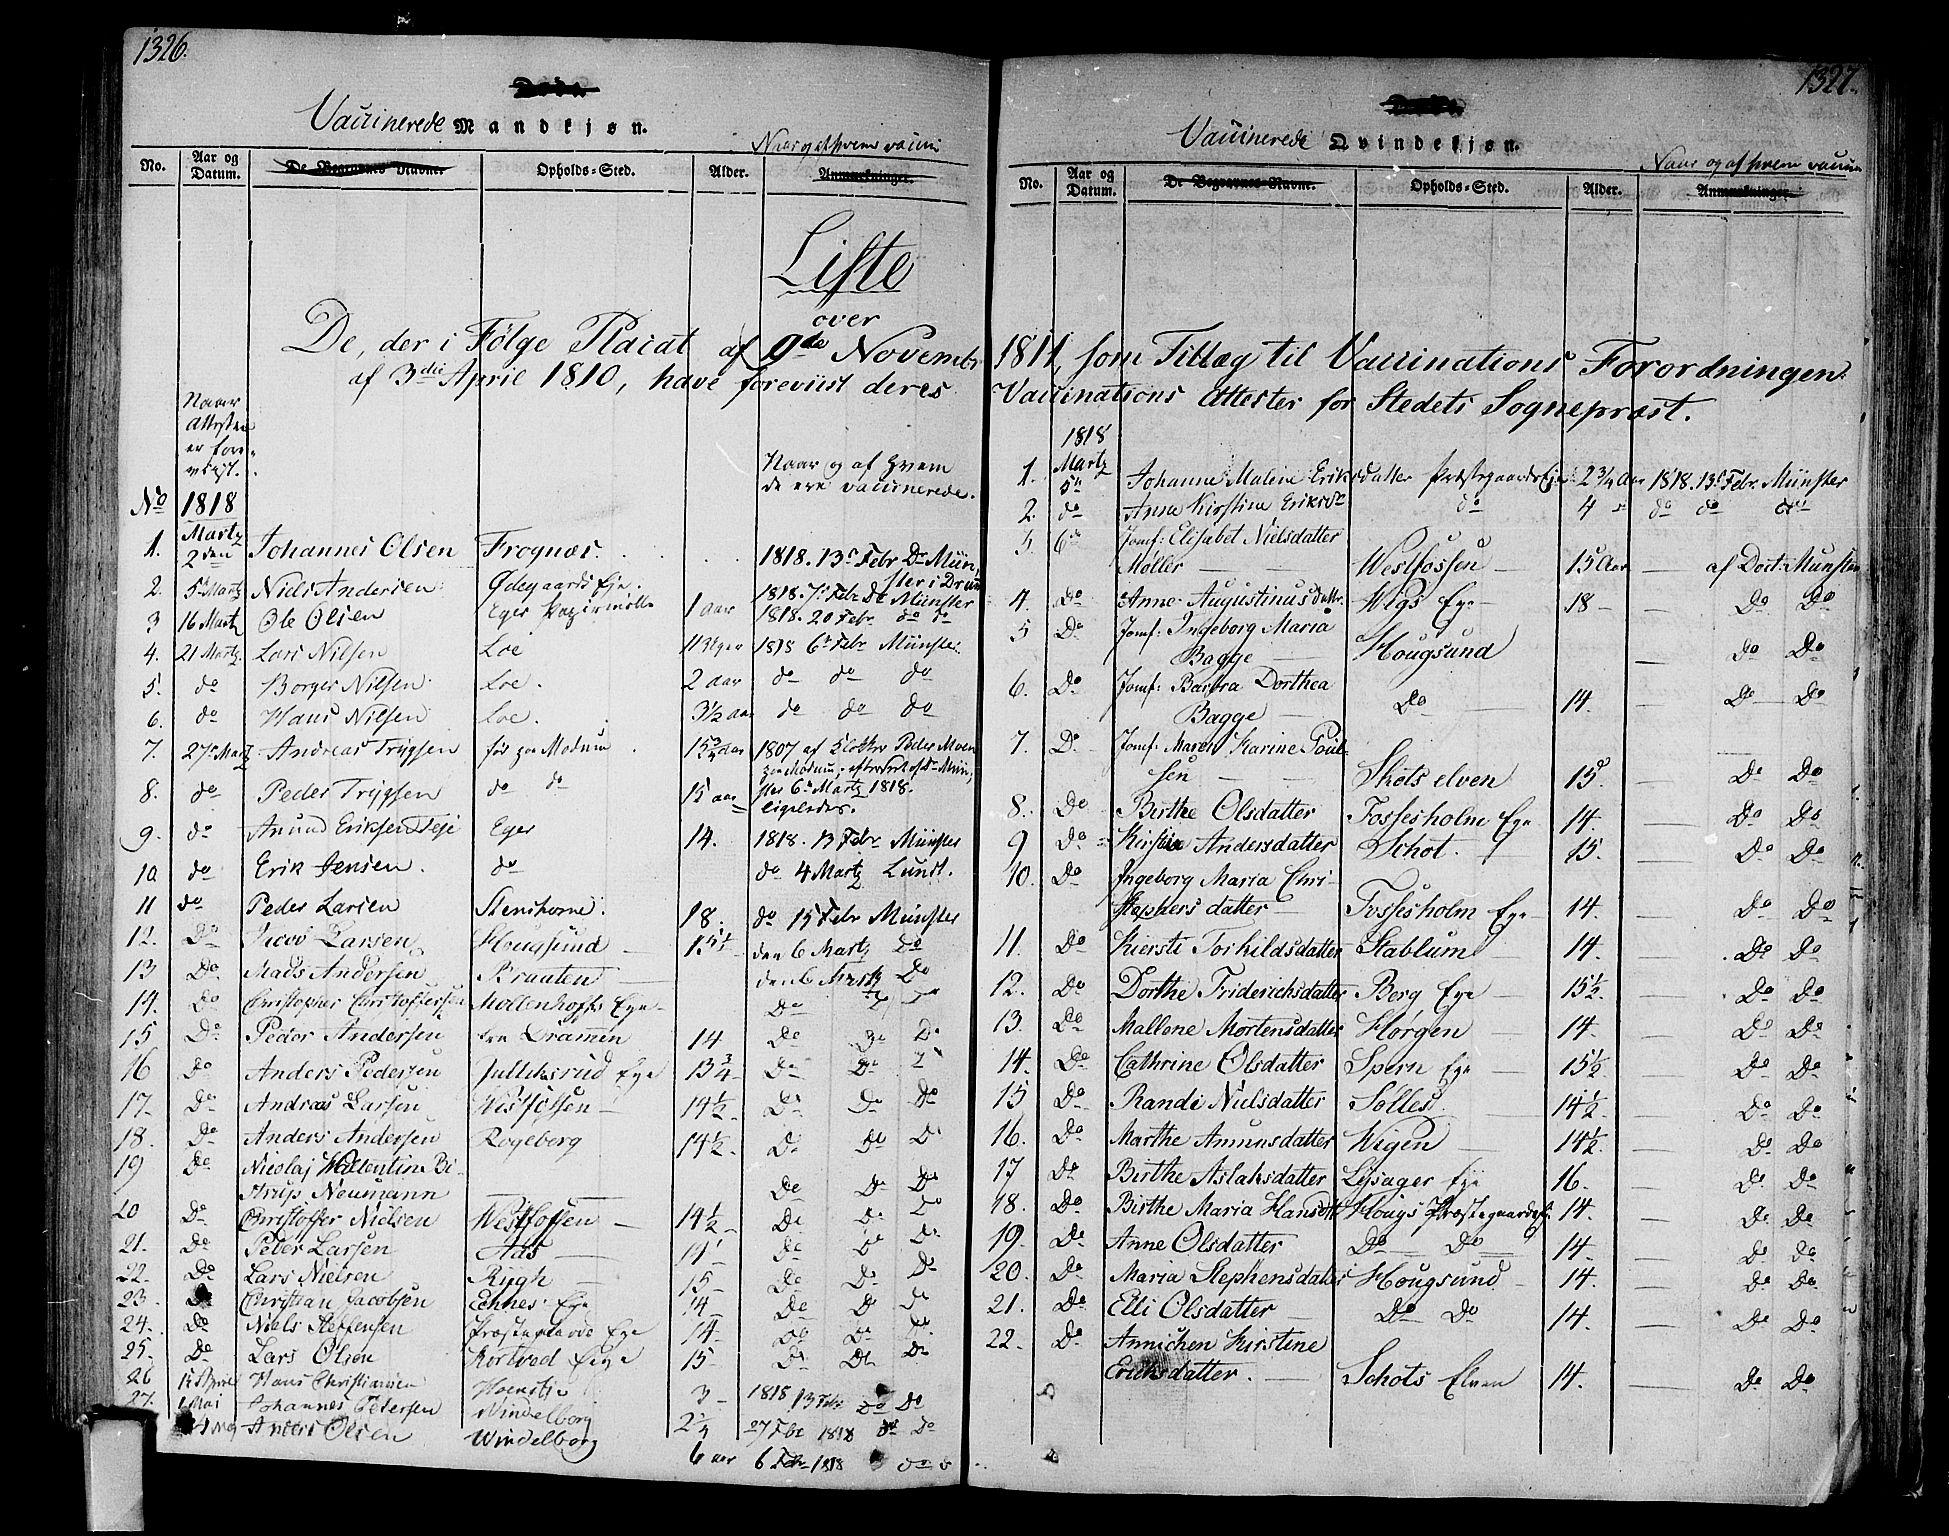 1326.
Døde
Vaccinerede Mandkjøn.
Naar og af hvem vacci
No. Aar og Datum. De Begravnes Navne. Opholds-Sted. Alder. Anmærkninger.
Liste
over
De, der i Følge Placat af 9de Novembr
af 3die April 1810, have foreviist deres
Naar
Attesten
er fore-
viist.
Naar og af hvem
de ere vaccinerede.
No 1818
1. Martz 2den Johannes Olsen Frognæs. 1818. 13 Febr Dr Mün-
ster i Dram
2. 5 Martz Niels Andersen Ødegaards Eje. 1818. 7 Febr Dr Münster
3 16 Martz Ole Olsen Eger Papirmølle 1 aar 1818. 20 Febr. do do
4. 21 Martz. Lars Nilsen Loe 1818 6 Febr Münster.
5. do Borger Nilsen Loe. 2 aar do do do
6. do Hans Nilsen Loe. 3½ aar do do do
7. 27 Martz Andreas Trygsen paa Modum 15¾ aar 1807 af Klokker Peder Moen
paa Modum, Dr Mün-
ster 6 Martz 1818.
8. do Peder Trygsen do do 15 aar ligeledes.
9. do Amund Eriksen Teje Eger 14. 1818. 13 Febr Münster
10. do Erik Jensen. do do 4 Martz Lund.
11 do Peder Larsen Stenshorne. 18. do 15 Febr Münster
12. Do Jacob Larsen Hougsund 15½ den 6 Martz Do
13 Do Mads Andersen Braaten den 6 Martz Do
14. Do Christopher Christoffersen Møllenhoffs Eye Do
15 Do Peder Andersen fra Dramen 14 Do Do Do
16 Do Anders Pedersen Eye 13¾ Do Do
17. Do Andreas Larsen Westfossen 14½ Do Do Do
18. Do Anders Andersen Rogeberg 14½ Do Do Do
19 Do Nicolaj Wallentin Bi-
strup Neumann Do Do Do
20 Do Christoffer Nielsen Westfossen 14½ Do Do Do
21. Do Peter Larsen Aas 14 Do Do Do
22. Do Lars Nielsen Rygh 15 Do Do Do
23. Do Christian Jacobsen Echnes Eye 14 Do Do Do
24. Do Niels Steffensen Præstegaards Eye 14. Do Do Do
25. Do Lars Olsen Kortved Eye 15 Do Do Do
26 Hans Christiansen 3 1818 13 Febr Do Do
27. 1 Mai Johannes Petersen Windelborg 27 Febr 1818 do Do
Anders Olsen Windelborg 6 aar 6 Febr 1818 do
1327.
Døde
Vaccinerede Qvindekjøn.
Naar og af hvem vaccin
No. Aar og Datum. De Begravnes Navne. Opholds-Sted. Alder. Anmærkninger.
1811, som Tillæg til Vaccinations Forordningen
Vaccinations Attester for Stedets Sognepræst.
1818
1. Martz 5 Johanne Malene Eriksdatter Præstegaards Eje 2¾ Aar 1818. 13 Febr. Münster
2. do Anna Kirstina Eriksd do 4 do do do
3. 6 Jomf: Elisabet Nielsdatter
Møller Westfossen 15 Aar af Doct: Munster
4. Do Anne Augustinusdattr. Wigs Eye 18 Do Do
5 Do Jomf: Ingeborg Maria
Bagge Hougsund Do Do
6. Do Jomf: Barbra Dorthea
Bagge Do 14. Do Do
7. Do Jomf: Maren Karine Poul-
sen Skots elven 15 Do Do
8. Do Birthe Olsdatter Fossesholm Eye 14. Do Do
9 Do Kirstin Andersdatter Schot. 15. Do Do
10. Do Ingeborg Maria Chri-
stophers datter Fossesholm Eye 14. Do Do
11. Do Kiersti Torkildsdatter Stablum 14. Do Do
12. Do Dorthe Friderichsdatter Berg Eye 15½. Do Do
13. Do Mallene Mortensdatter Hørgen 14. Do Do
14. Do Cathrine Olsdatter Spern Eye 15½ Do Do
15 Do Randi Nielsdatter Solles 14½. Do Do
16. Do Marthe Amunsdatter Wigen 14½. Do Do
17 Do Birthe Aslaksdatter Lysager Eye 16. Do Do
18. Do Birthe Maria Hansdttr Hougs Præstegaardse. 14. Do Do
19. Do Anne Olsdatter Do Do 14. Do Do
20. Do Maria Stephensdatter Hougsund 14. Do Do
21. Do Elli Olsdatter Do Do 14. Do Do
22. Do Annichen Kirstine
Ericksdatter. Schots Elven 14. Do Do